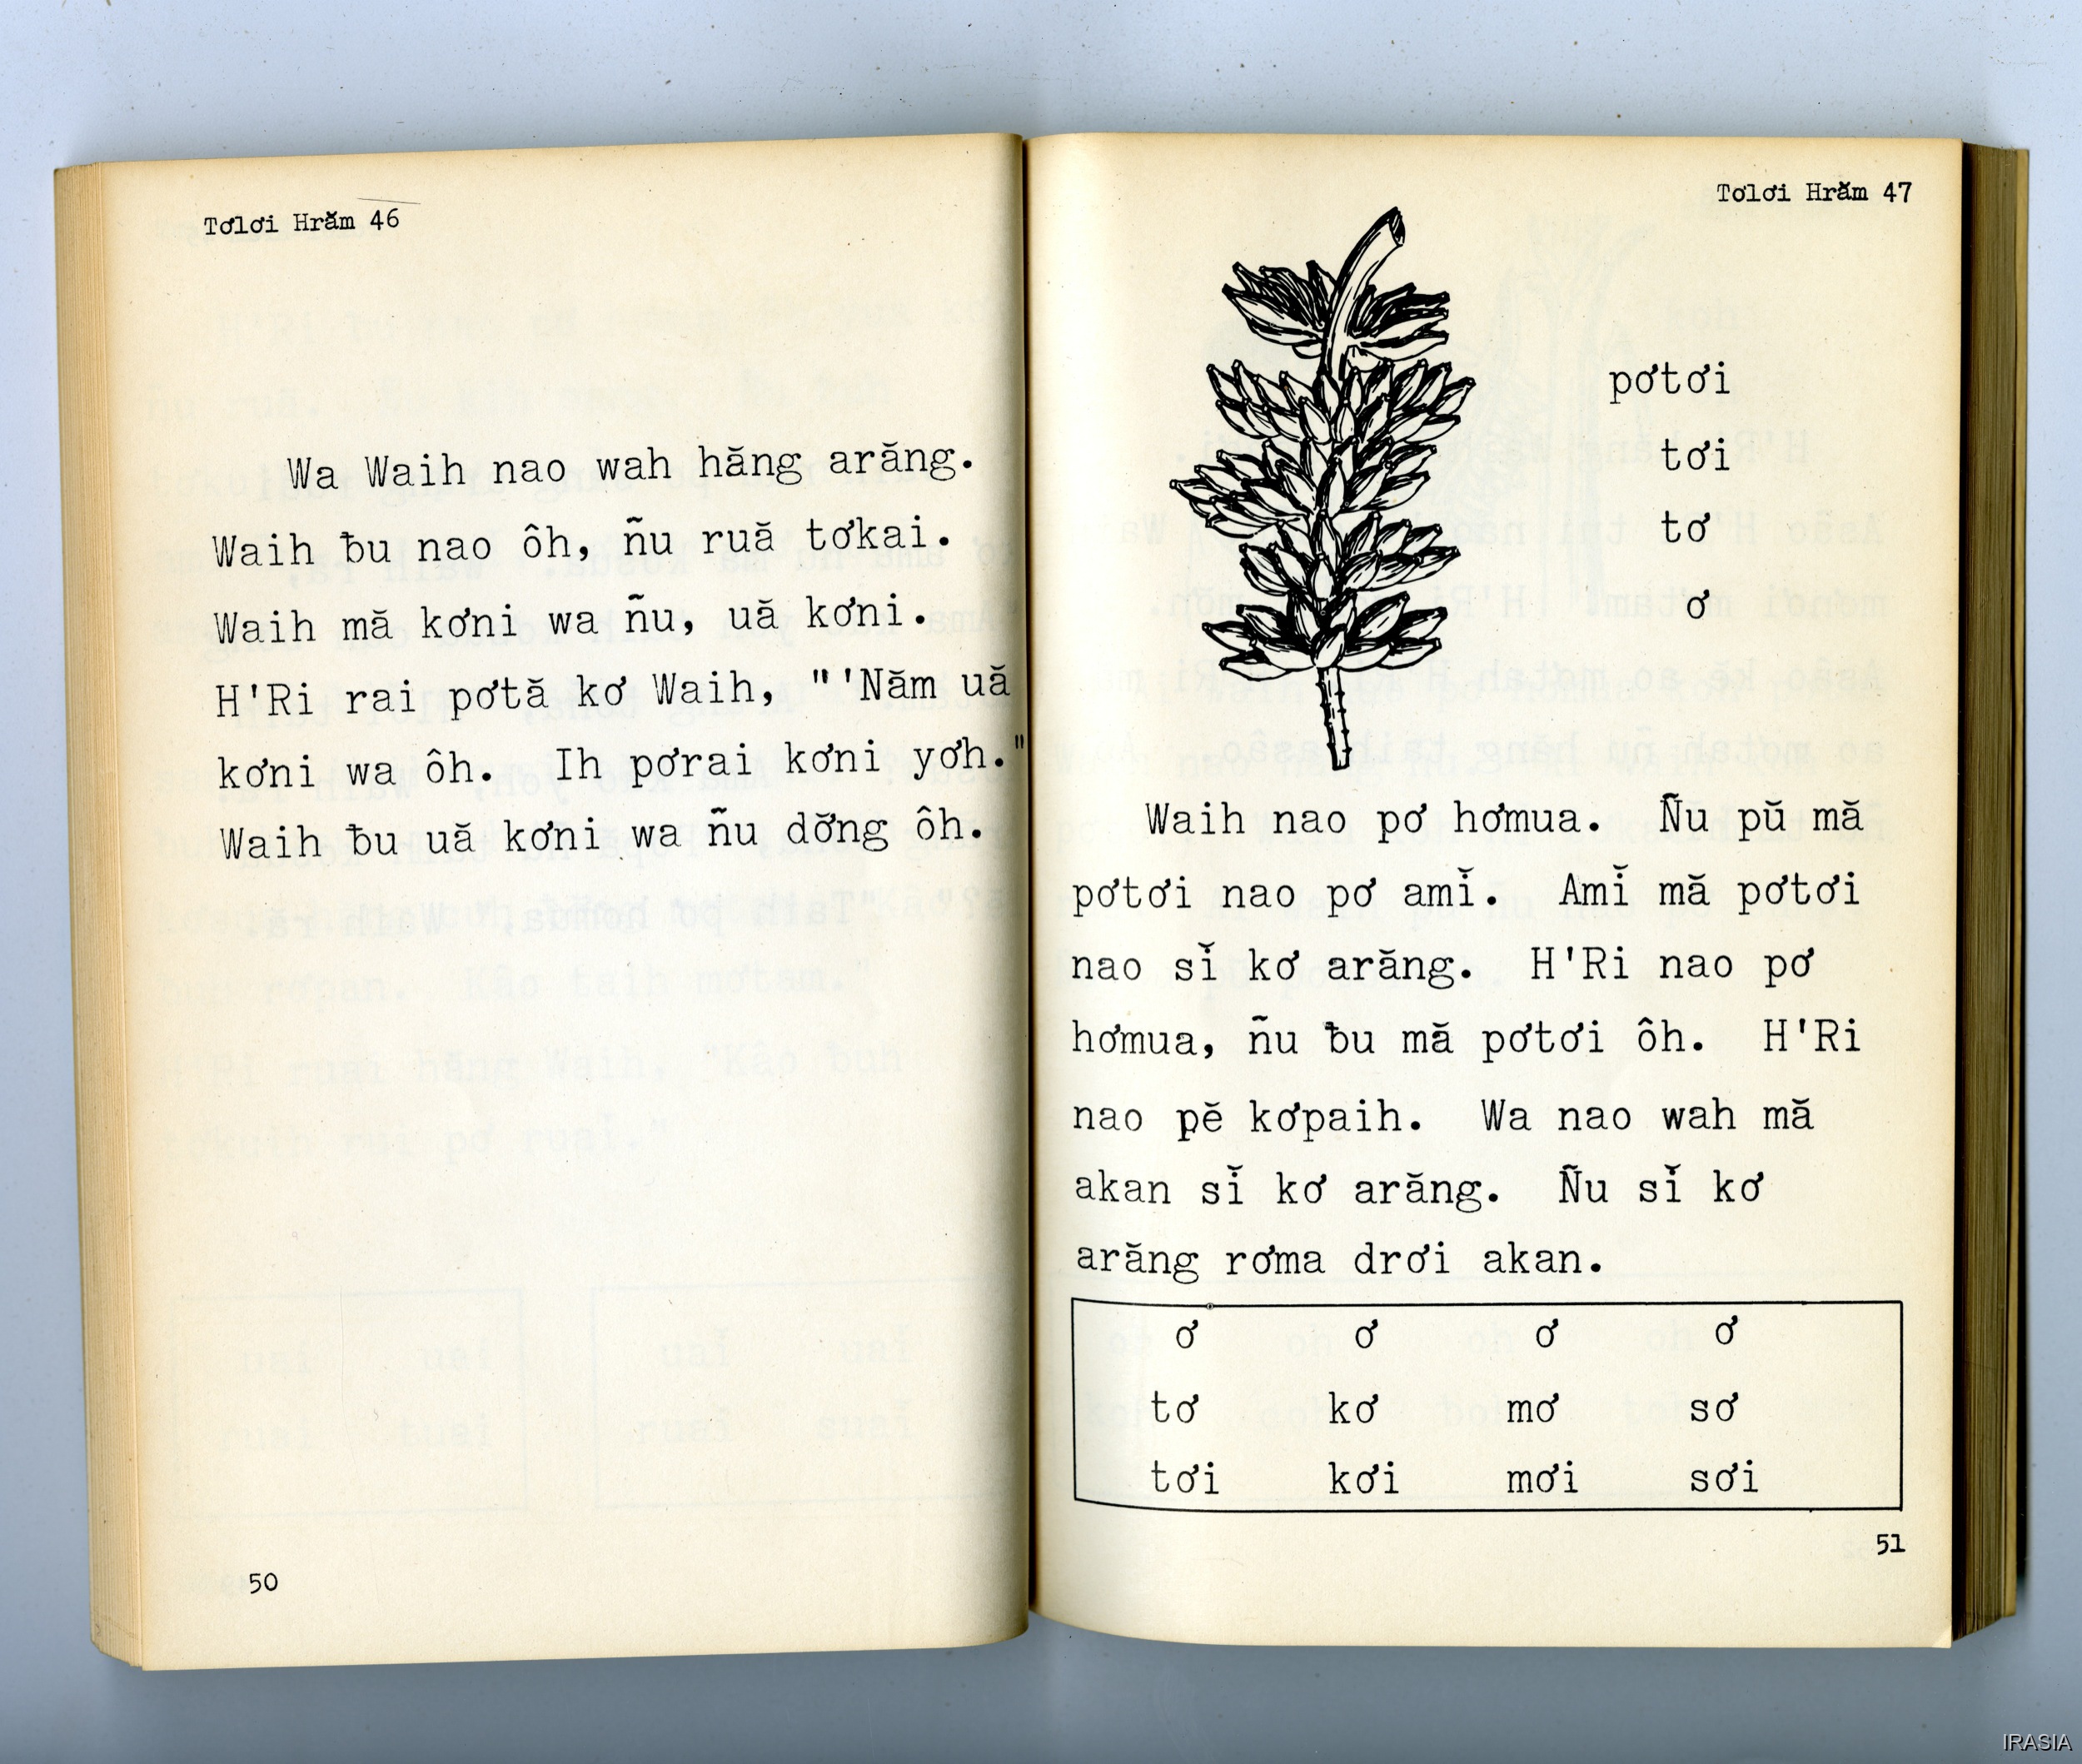 Tơlơi Hrăm 46
Wa Waih nao wah hăng arăng.
Waih ƀu nao ôh, ñu ruă tơkai.
Waih mă kơni wa ñu, uă kơni.
H'Ri rai pơtă kơ Waih, "'Năm uă
kơni wa ôh. Ih pơrai kơni yơh."
Waih ƀu uă kơni wa ñu dơ̆ng ôh.
50
Tơlơi Hrăm 47
pơtơi
tơi
tơ
ơ
Waih nao pơ hơmua. Ñu pŭ mă
pơtơi nao pơ amĭ. Amĭ mă pơtơi
nao sĭ kơ arăng. H'Ri nao pơ
hơmua, ñu ƀu mă pơtơi ôh. H'Ri
nao pĕ kơpaih. Wa nao wah mă
akan sĭ kơ arăng. Ñu sĭ kơ
arăng rơma drơi akan.
ơ ơ ơ ơ
tơ kơ mơ sơ
tơi kơi mơi sơi
51
IRASIA